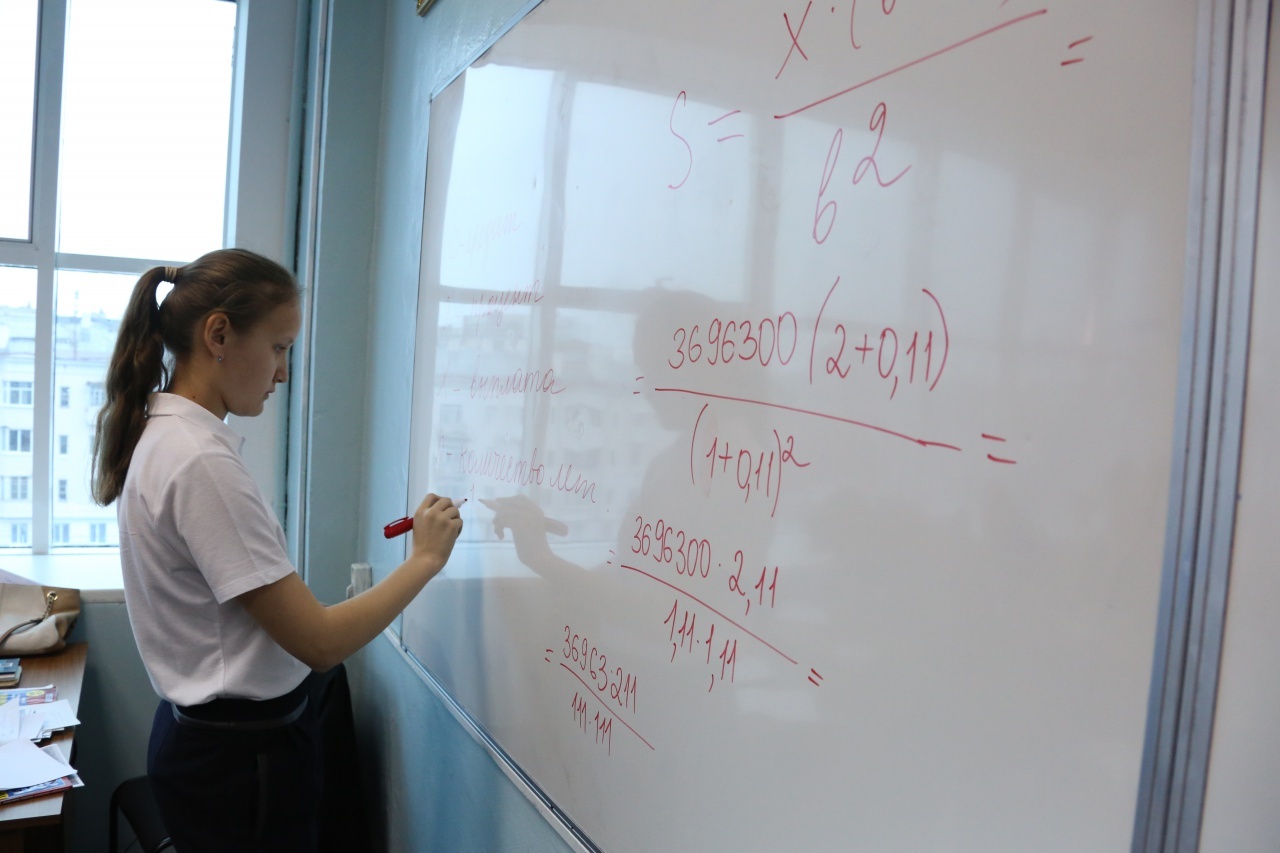 x · (
S = =
b²
- выплата
- количество лет
= 3696300 (2+0,11) =
(1+0,11)²
= 3696300 · 2,11 =
1,11 · 1,11
= 36963 · 211
111 · 111